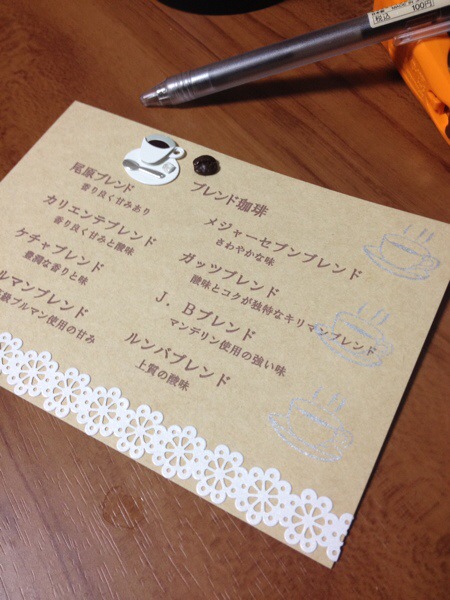 ブレンド珈琲
メジャーセブンブレンド
さわやかな味
ガッツブレンド
酸味とコクが独特なキリマンブレンド
J．Bブレンド
マンデリン使用の強い味
ルンバブレンド
上質の酸味
尾原ブレンド
香り良く甘みあり
カリエンテブレンド
香り良く甘みと酸味
ケチャブレンド
濃潤な香りと味
ルマンブレンド
級ブルマン使用の甘み
税込
100円